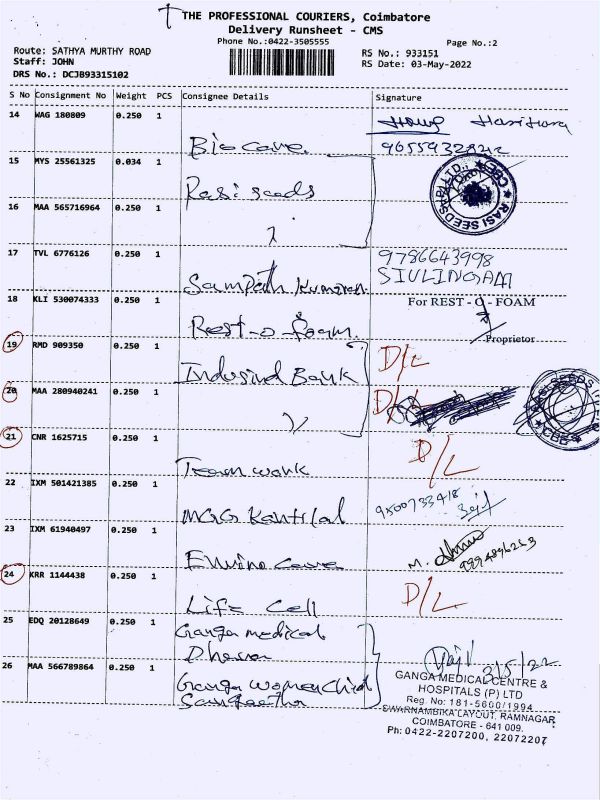 THE PROFESSIONAL COURIERS, Coimbatore
Delivery Runsheet - CMS
Phone No.:0422-3505555
Page No.:2
Route: SATHYA MURTHY ROAD
RS No.: 933151
Staff: JOHN
RS Date: 03-May-2022
DRS No.: DCJB93315102
S No Consignment No Weight PCS Consignee Details Signature
14 WAG 180809 0.250 1
Bio care. 9655932
15 MYS 25561325 0.034 1
Rasi seeds
RASI SEEDS (P) LTD. CBE
16 MAA 565716964 0.250 1
17 TVL 6776126 0.250 1
9786643998
Sampath Kumaran SIVLINGAM
18 KLI 530074333 0.250 1
For REST - O - FOAM
Rest-o foam.
Proprietor
19 RMD 909350 0.250 1
Indusind Bank D/L
20 MAA 280940241 0.250 1
〃 D/L
21 CNR 1625715 0.250 1
Team work D/L
22 IXM 501421385 0.250 1
MGG Kantilal 9500733418
23 IXM 61940497 0.250 1
care M.
24 KRR 1144438 0.250 1
Life Cell D/L
25 EDQ 20128649 0.250 1
Ganga medical
3/5/22
26 MAA 566789864 0.250 1
Ganga women child
Sangeetha
GANGA MEDICAL CENTRE &
HOSPITALS (P) LTD
Reg. No: 181-5600/1994
SWARNAMBIKA LAYOUT, RAMNAGAR
COIMBATORE - 641 009.
Ph: 0422-2207200, 2207220